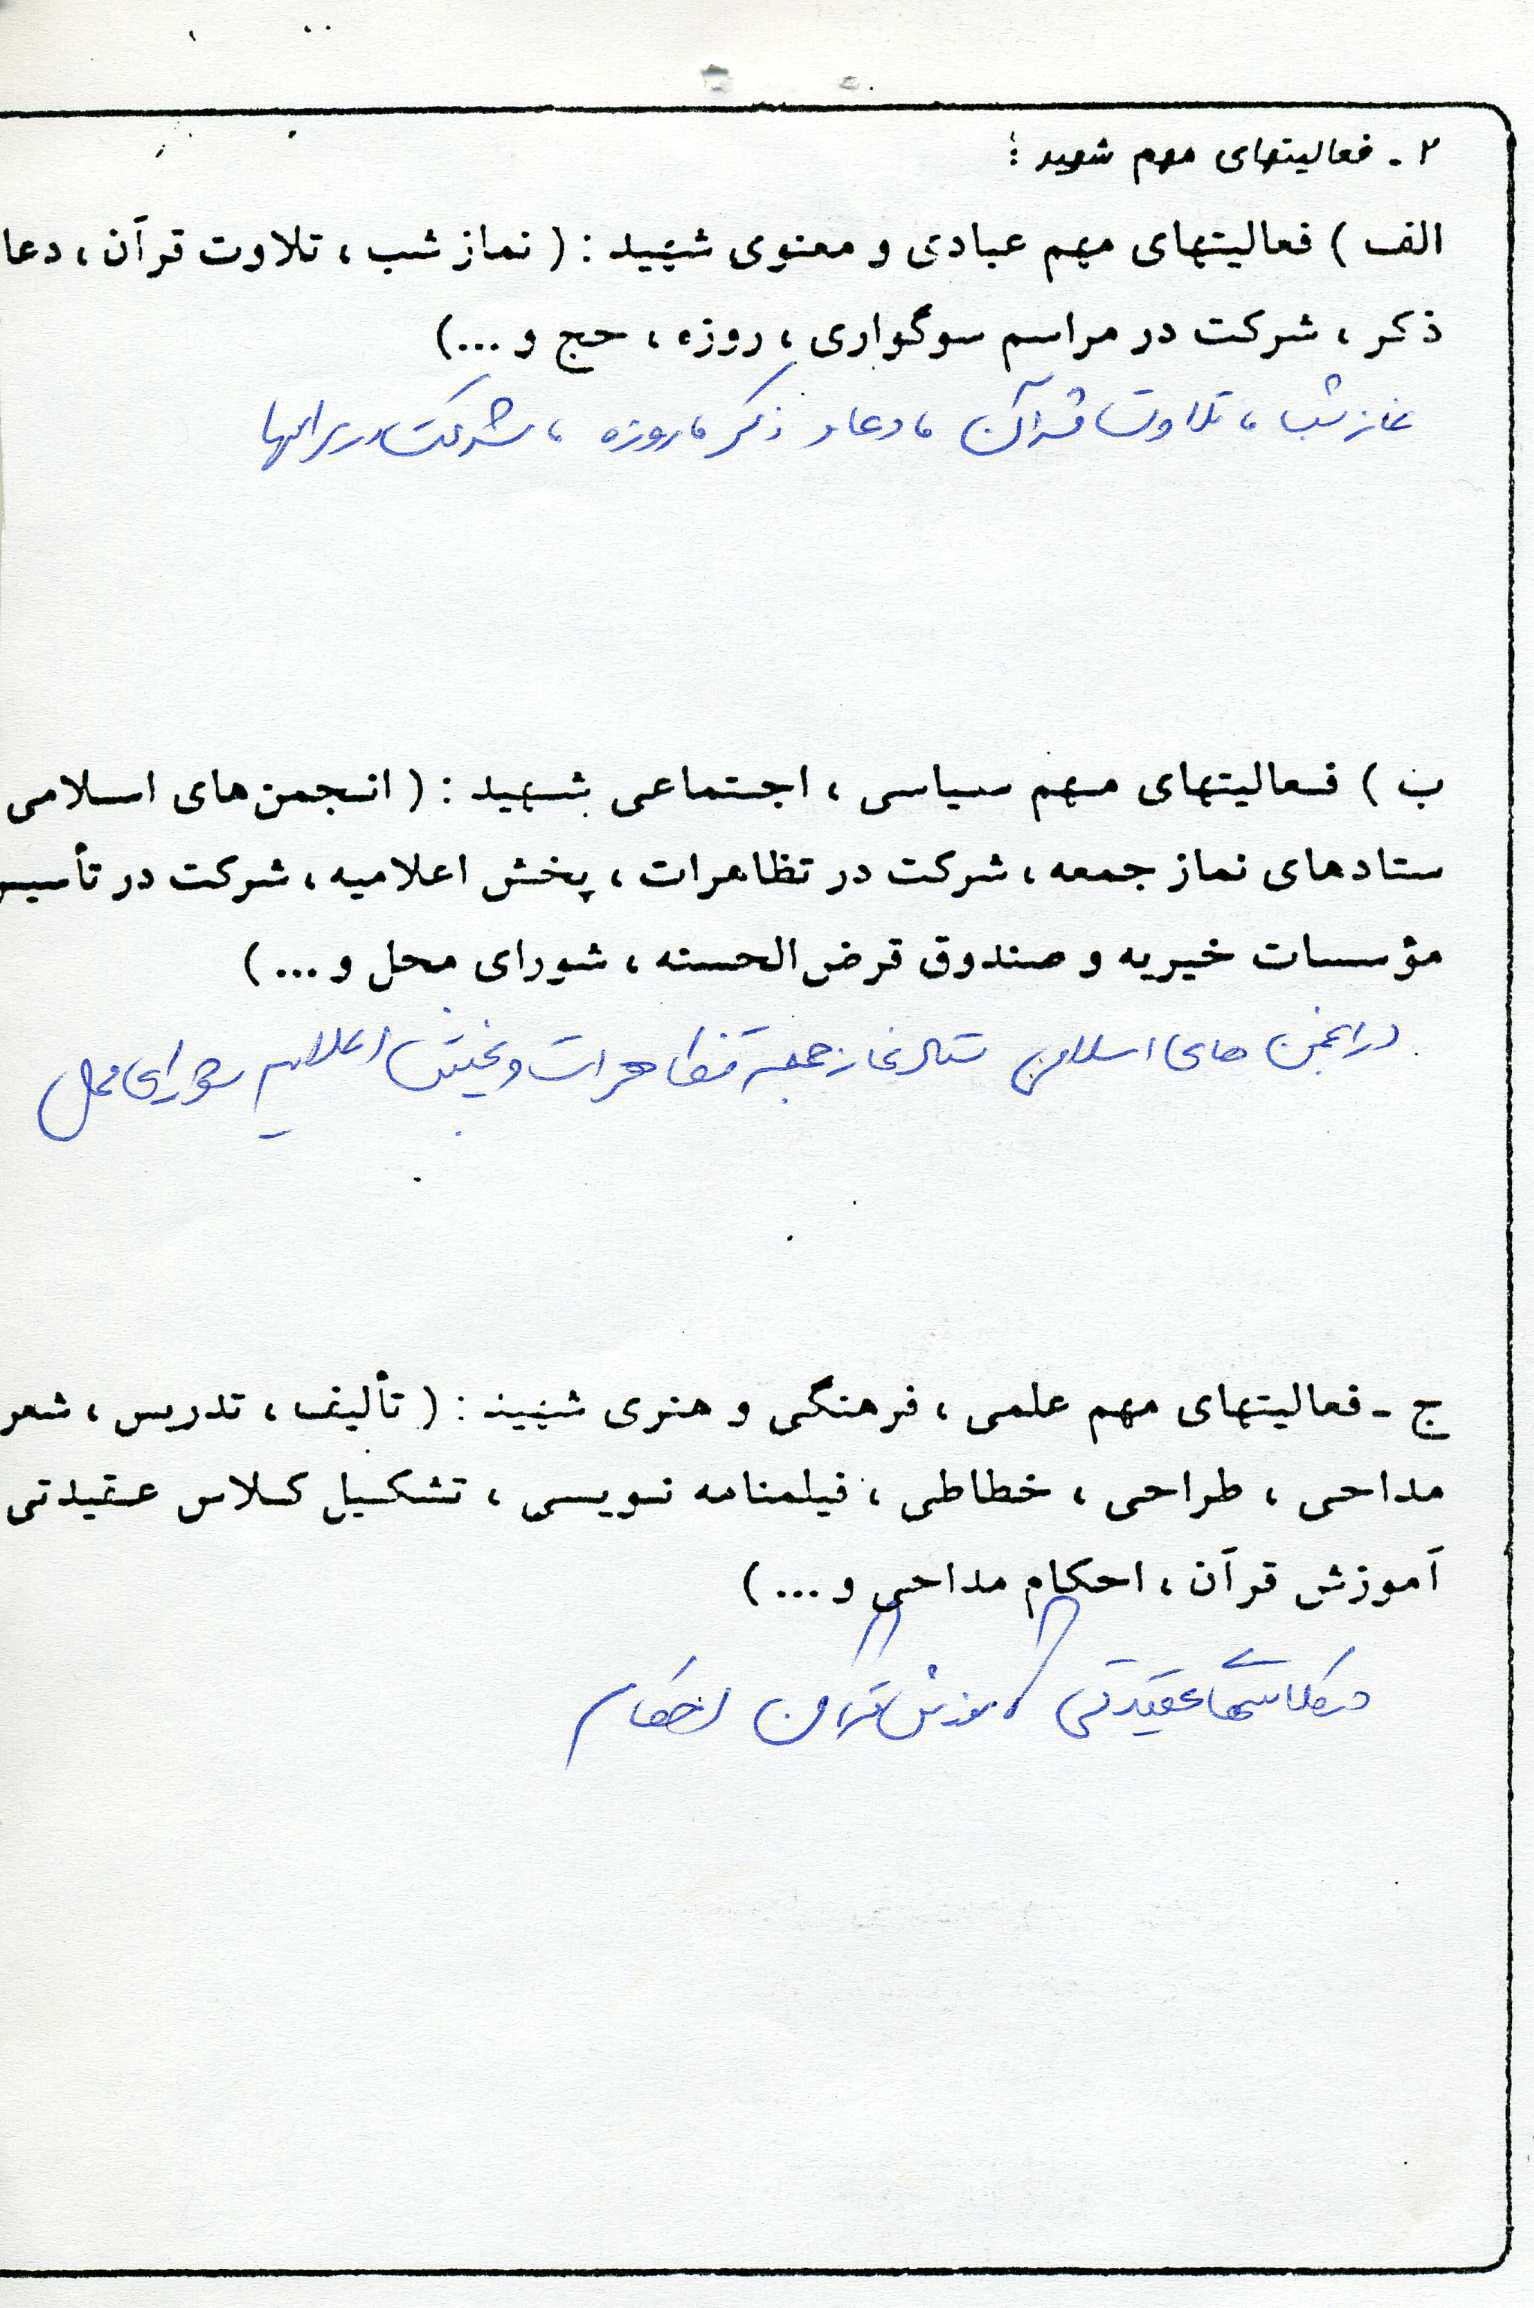 ۲ - فعالیتهای مهم شهید :
الف ) فعالیتهای مهم عبادی و معنوی شهید : ( نماز شب ، تلاوت قرآن ، دعا
ذکر ، شرکت در مراسم سوگواری ، روزه ، حج و ...)
نماز شب ، تلاوت قرآن ، دعا و ذکر ، روزه ، شرکت در
ب ) فعالیتهای مهم سیاسی ، اجتماعی شهید : ( انجمن های اسلامی
ستادهای نماز جمعه ، شرکت در تظاهرات ، پخش اعلامیه ، شرکت در تأسیس
مؤسسات خیریه و صندوق قرض الحسنه ، شورای محل و ... )
در انجمن های اسلامی ستاد نماز جمعه تظاهرات و پخش اعلامیه شورای محل
ج - فعالیتهای مهم علمی ، فرهنگی و هنری شهید : ( تألیف ، تدریس ، شعر
مداحی ، طراحی ، خطاطی ، فیلمنامه نویسی ، تشکیل کلاس عقیدتی
آموزش قرآن ، احکام مداحی و ... )
در کلاسهای عقیدتی آموزش قرآن احکام